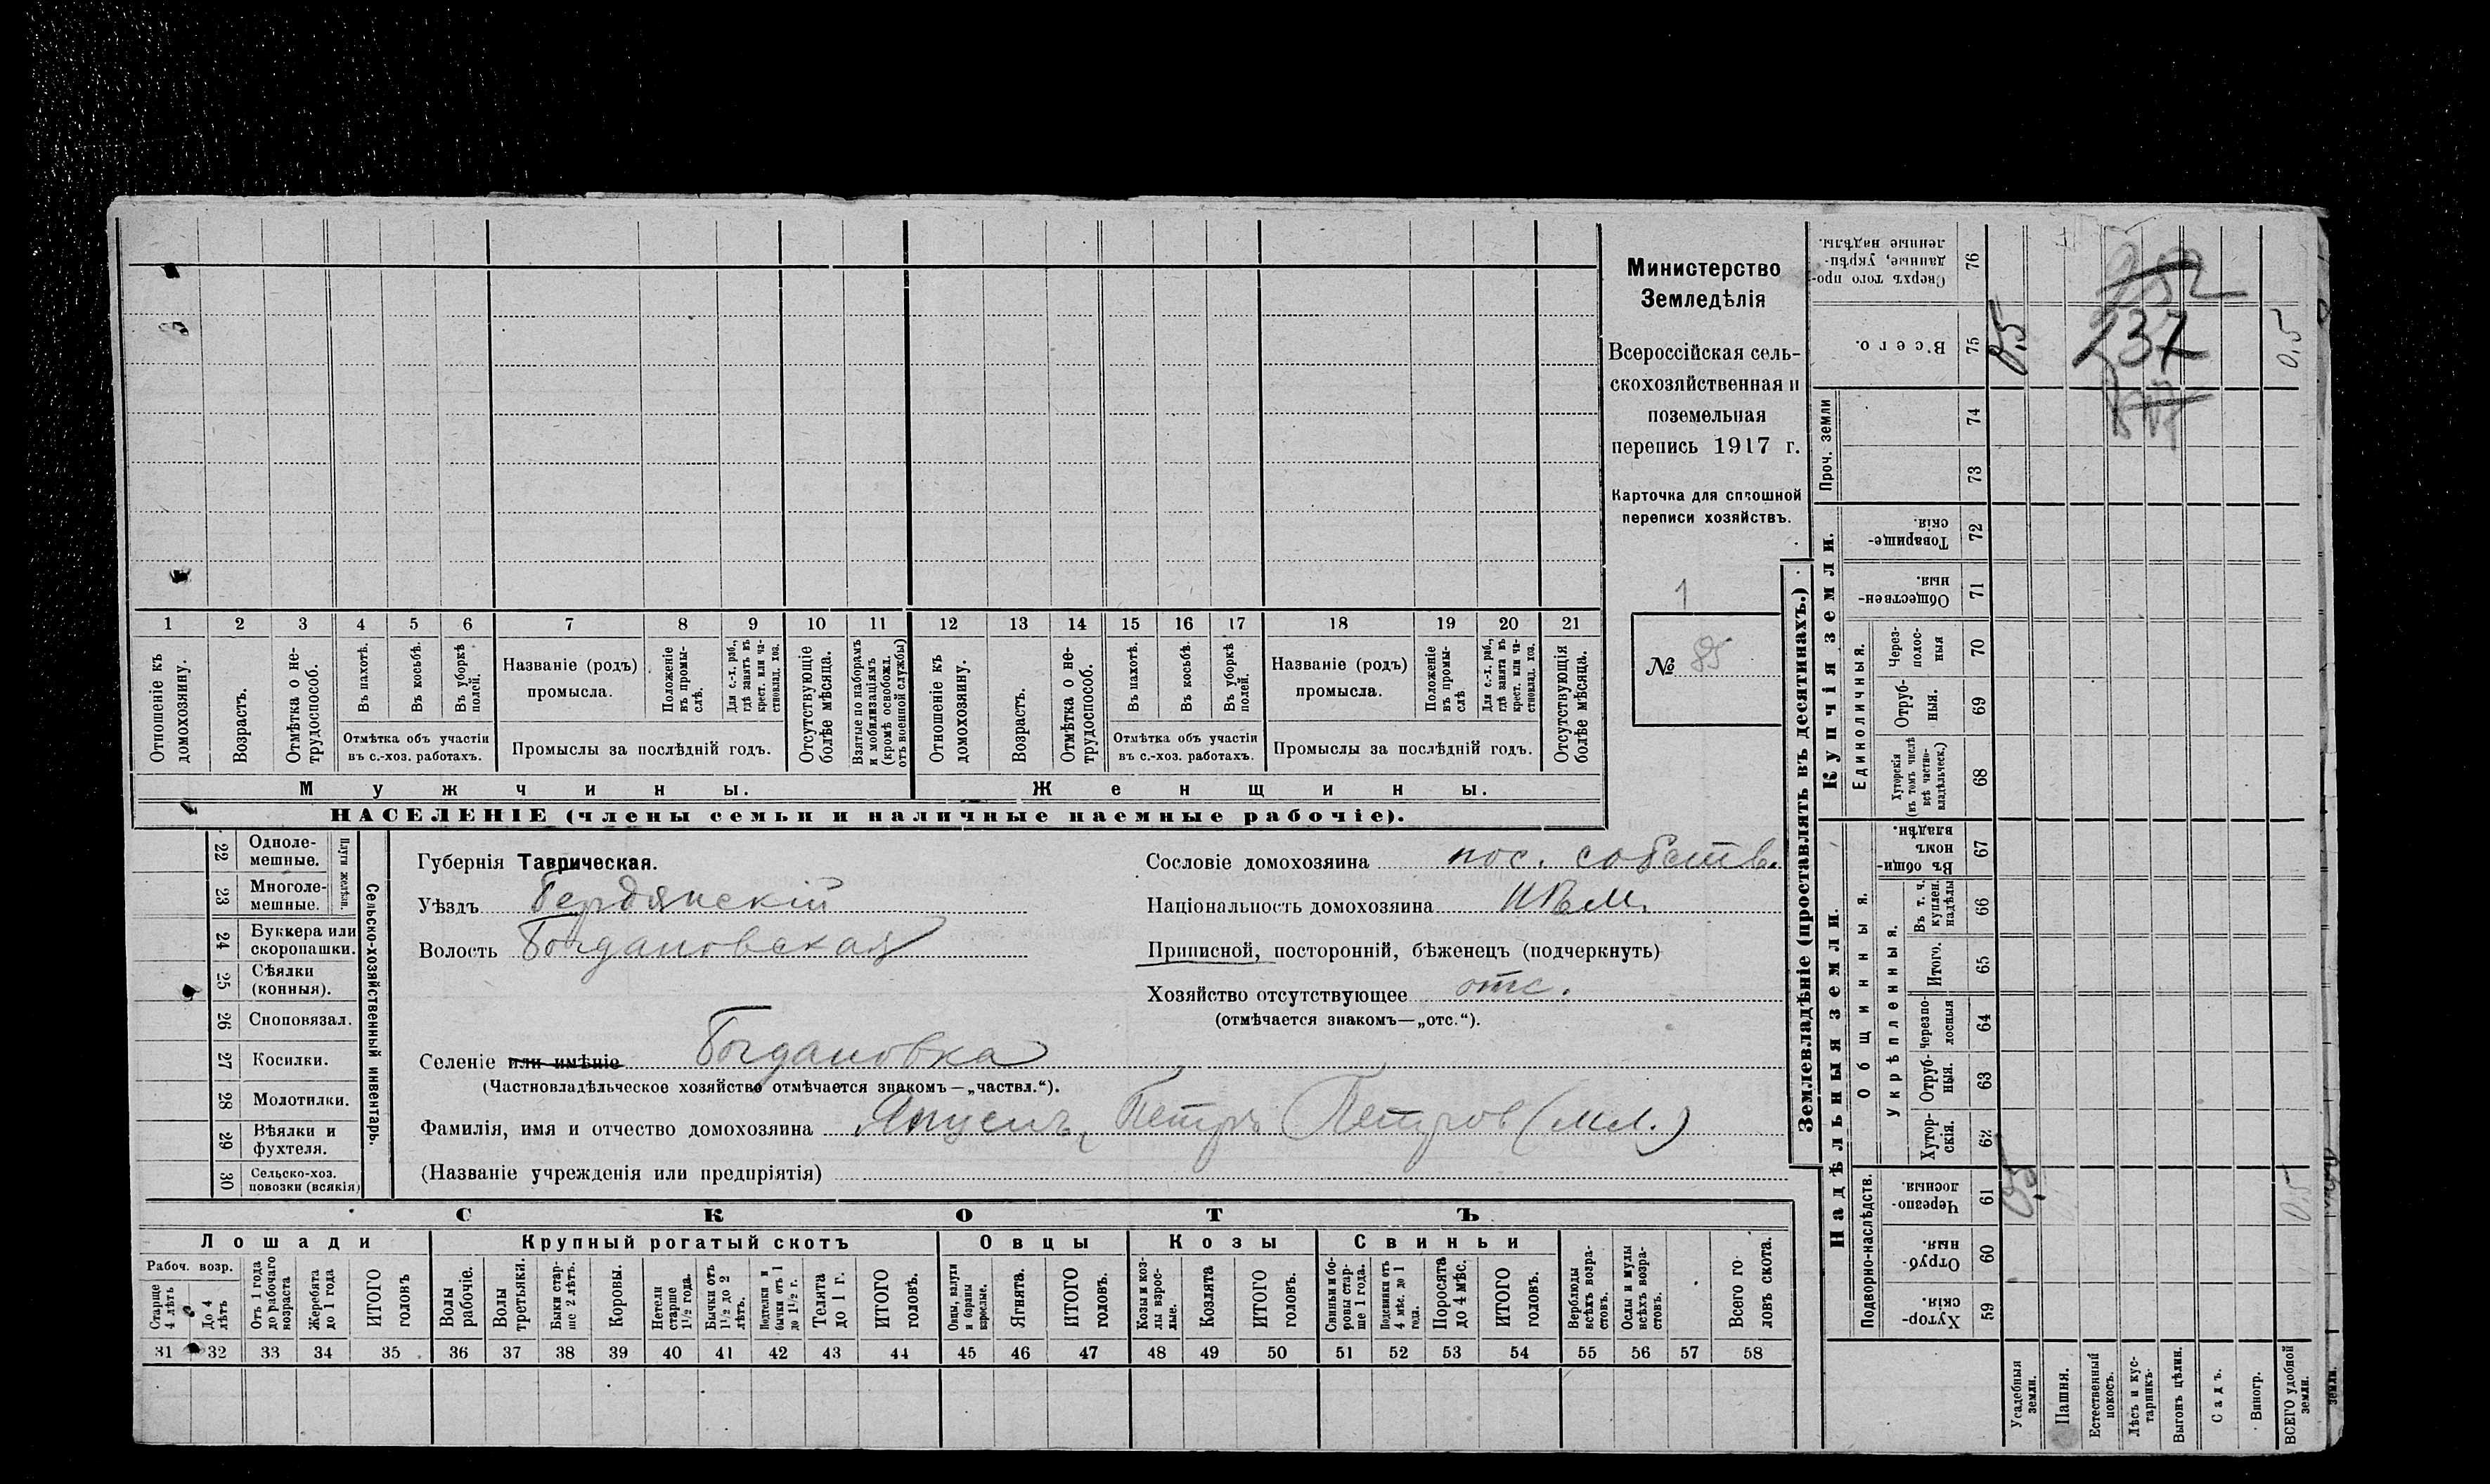 Министерство
Земледѣлія
Всероссійская сель-
скохозяйственная и
поземельная
перепись 1917 г.
Карточка для сплошной
переписи хозяйствъ.
1
№ 85
1 2 3 4 5 6 7 8 9 10 11 12 13 14 15 16 17 18 19 20 21
Отношеніе къ домохозяину.
Возрастъ.
Отмѣтка о не-трудоспособ.
Въ пахотѣ.
Въ косьбѣ.
Въ уборкѣ полей.
Отмѣтка объ участіи
въ с.-хоз. работахъ.
Названіе (родъ)
промысла.
Положеніе въ промы-слѣ.
Для с.-х. раб., гдѣ занятъ въ крест. или ча-стновлад. хоз.
Промыслы за послѣдній годъ.
Отсутствующіе болѣе мѣсяца.
Взятые по наборамъ и мобилизаціямъ (кромѣ освобожд. отъ военной службы)
Отношеніе къ домохозяину.
Возрастъ.
Отмѣтка о не-трудоспособ.
Въ пахотѣ.
Въ косьбѣ.
Въ уборкѣ полей.
Отмѣтка объ участіи
въ с.-хоз. работахъ.
Названіе (родъ)
промысла.
Положеніе въ промы-слѣ
Для с.-х. раб., гдѣ занята въ крест. или ча-стновлад. хоз.
Промыслы за послѣдній годъ.
Отсутствующія болѣе мѣсяца.
Мужчины. Женщины.
НАСЕЛЕНІЕ (члены семьи и наличные наемные рабочіе).
Сельско-хозяйственный инвентарь.
Плуги желѣзн.
22 Одноле-мешные.
23 Многоле-мешные.
24 Буккера или скоропашки.
25 Сѣялки (конныя).
26 Сноповязал.
27 Косилки.
28 Молотилки.
29 Вѣялки и фухтеля.
30 Сельско-хоз. повозки (всякія)
Губернія Таврическая.
Уѣздъ Бердянскій
Волость Богдановская
Селеніе или имѣніе Богдановка
(Частновладѣльческое хозяйство отмѣчается знакомъ—„частвл.“).
Фамилія, имя и отчество домохозяина Янценъ, Петръ Петров (мл.)
(Названіе учрежденія или предпріятія)
Сословіе домохозяина пос. собств.
Національность домохозяина нѣм.
Приписной, посторонній, бѣженецъ (подчеркнуть)
Хозяйство отсутствующее отс.
(отмѣчается знакомъ—„отс.“).
СКОТЪ
Лошади Крупный рогатый скотъ Овцы Козы Свиньи
Рабоч. возр.
Старше 4 лѣтъ
До 4 лѣтъ
Отъ 1 года до рабочаго возраста
Жеребята до 1 года
ИТОГО головъ
Волы рабочіе.
Волы третьяки.
Быки стар-ше 2 лѣтъ.
Коровы.
Нетели старше 1½ года.
Бычки отъ 1½ до 2 лѣтъ.
Подтелки и бычки отъ 1 до 1½ г.
Телята до 1 г.
ИТОГО головъ.
Овцы, валухи и бараны взрослые.
Ягнята.
ИТОГО головъ.
Козы и коз-лы взрос-лые.
Козлята
ИТОГО головъ.
Свиньи и бо-ровы стар-ше 1 года.
Подсвинки отъ 4 мѣс. до 1 года.
Поросята до 4 мѣс.
ИТОГО головъ.
Верблюды всѣхъ возра-стовъ.
Ослы и мулы всѣхъ возра-стовъ.
Всего го-ловъ скота.
31 32 33 34 35 36 37 38 39 40 41 42 43 44 45 46 47 48 49 50 51 52 53 54 55 56 57 58
Землевладѣніе (проставлять въ десятинахъ.)
Надѣльныя земли. Купчія земли. Проч. земли
Подворно-наслѣдств.
Общинныя.
Укрѣпленныя.
Единоличныя.
Хутор-скія. 59
Отруб-ныя. 60
Черезпо-лосныя. 61
Хутор-скія. 62
Отруб-ныя. 63
Черезпо-лосныя 64
Итого. 65
Въ т. ч. куплен. надѣлы 66
Въ общи-номъ владѣн. 67
Хуторскія (въ томъ числѣ всѣ частно-владѣльческ.) 68
Отруб-ныя. 69
Через-полос-ныя 70
Обществен-ныя. 71
Товарище-скія. 72
73
74
Всего. 75
Сверхъ того про-данные, укрѣп-ленные надѣлы. 76
Усадебныя земли.
Пашня.
Естественный покосъ.
Лѣсъ и кус-тарникъ.
Выгонъ цѣлин.
Садъ.
Виногр.
ВСЕГО удобной земли.
0.5
0.5
0.5
0.5
252
237